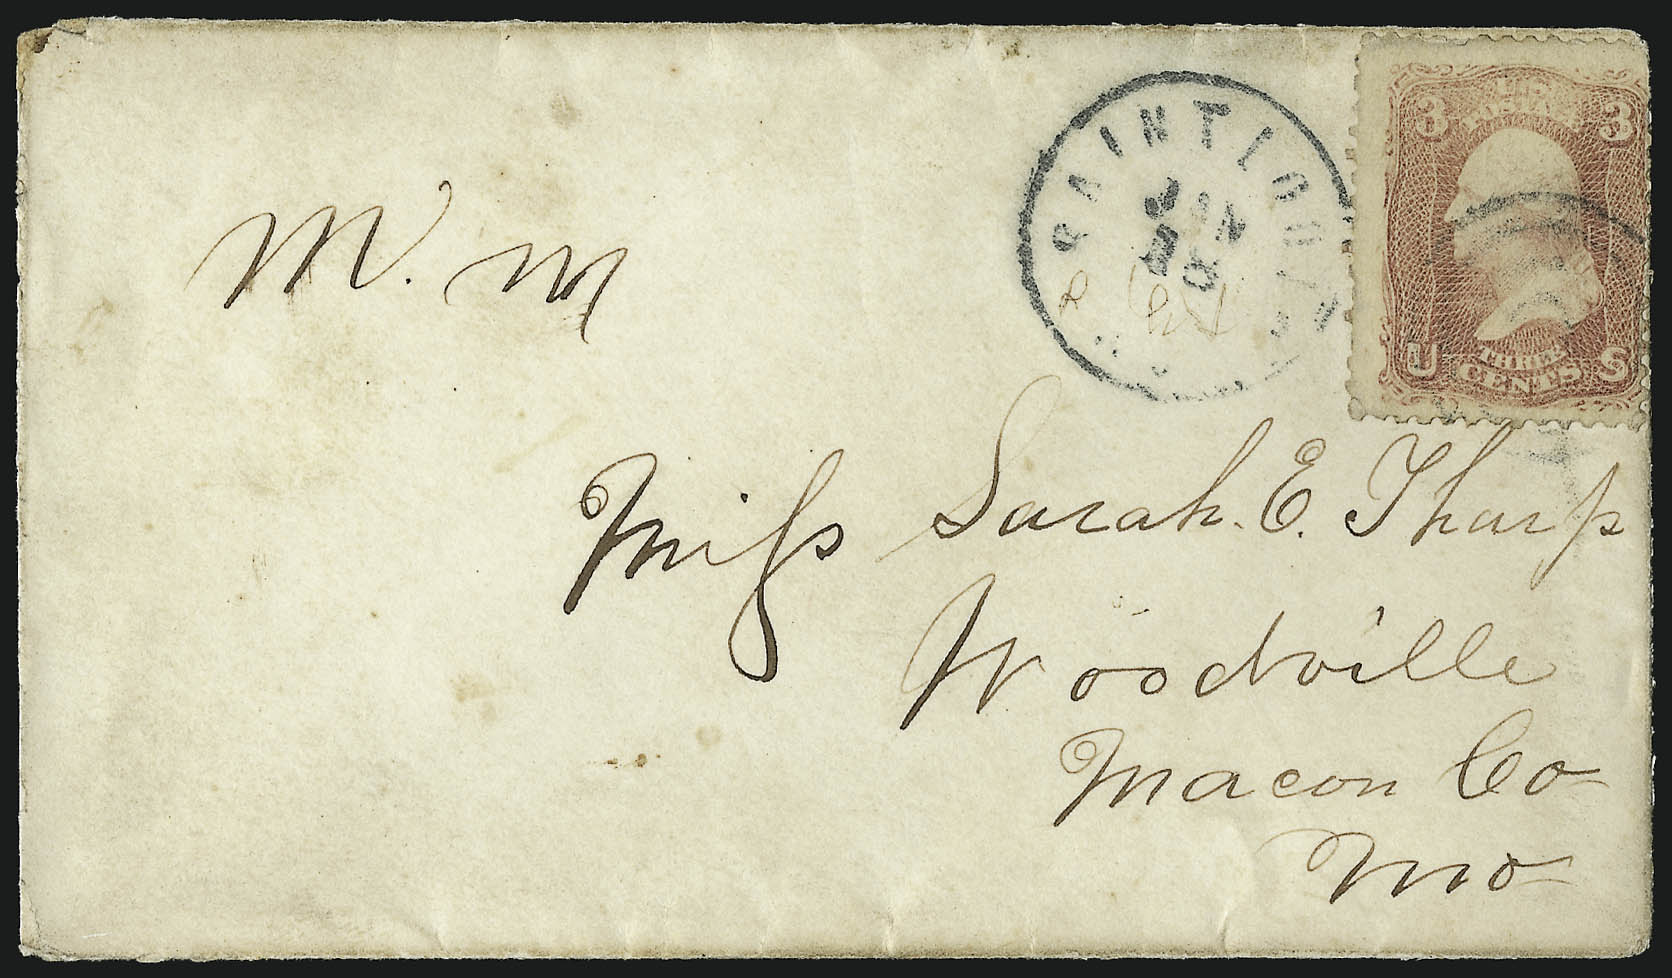 M. M
SAINT LOUIS
JAN
18
3 3
U.S.
POSTAGE
U S
THREE
CENTS
Miss Sarah. E. Tharp
Woodville
Macon Co
Mo